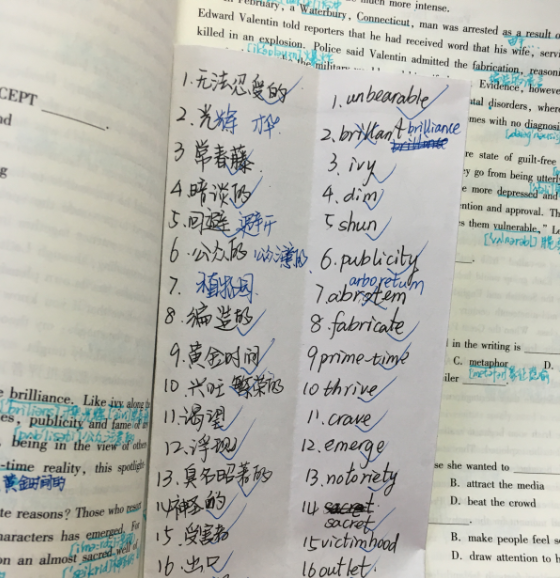 much more intense.
February, a Waterbury, Connecticut, man was arrested as a result o
Edward Valentin told reporters that he had received word that his wife, serv
killed in an explosion. Police said Valentin admitted the fabrication, reason
Evidence, howeve
tal disorders, where
mes with no diagnosi
re state of guilt-free
ey go from being utterly
e more depressed and
ention and approval. Th
es them vulnerable." Le
CEPT
nd
1.无法忍受的
2.光辉 才华
3 常春藤
4 暗淡的
5 回避 避开
6.公众的
7. 植物园
8.编造的
9.黄金时间
10.兴旺 繁荣的
11.渴望
12.浮现
13.臭名昭著的
14神圣的
15.受害者
16.出口
1.unbearable
2.brillant brilliance
brilliance
3.ivy
4.dim
5 shun
6.publicity
arboretum
7.abrotem
8.fabricate
9 prime-time
10 thrive
11.crave
12.emerge
13.notoriety
14 sacret
sacret
15 victimhood
16 outlet.
e brilliance. Like ivy along
es, publicity and fame of
, being in the view of other
-time reality, this spotligh
黄金时间的
te reasons? Those who
haracters has emerged. For
on an almost sacred well of
d in the writing is
C. metaphor D.
iler
se she wanted to
B. attract the media
D. beat the crowd
B. make people feel s
D. draw attention to h